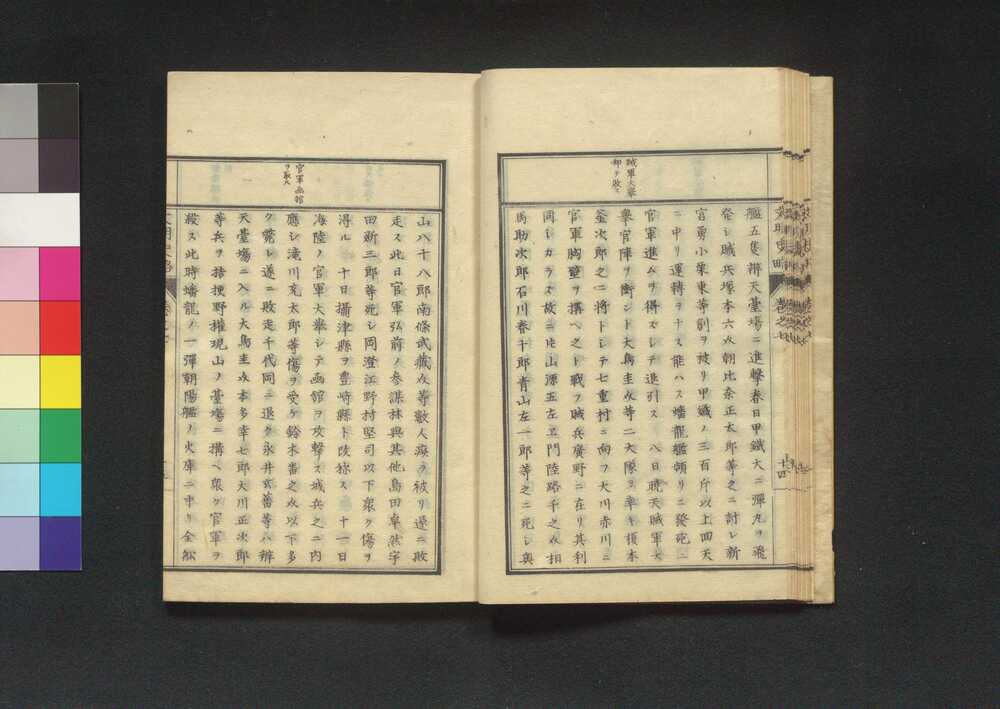 賊軍大擧
艦五隻辨天臺場ニ進撃春日甲鐵大ニ彈丸ヲ飛
發シ賊兵塚本六〆朝比奈正太郎等之ニ討レ新
宮勇小栗東等創ヲ被リ甲鐵ノ三百斤以上回天
ニ中リ運轉ヲナス能ハス蟠龍艦頻リニ發砲ニ
官軍進ムヲ得スシテ退引ス 八日曉天賊軍大
擧官陣ヲ衝シト大鳥圭介等二大隊ヲ率キ榎本
釜次郎之ニ將トシテ七重村ニ向フ大川赤川ニ
官軍胸壁ヲ撰ヘ之ト戰フ賊兵廣野ニ在リ其利
同シカラス故ニ片山源五左エ門陸路千之介相
馬助次郎石川春十郎青山左一郎等之ニ死シ奧
官軍凾館
ヲ取ル
山八十八郎南條武藏介等數人痍ヲ被リ遂ニ敗
走ス此日官軍弘前ノ參謀林與其他島田卓然宇
田新三郎等死シ岡澄江野村堅司以下衆ク傷ヲ
得ル 十日攝津縣ヲ豊崎縣ト改稱ス 十一日
海陸ノ官軍大擧シテ凾館ヲ攻撃ス城兵之ニ内
應シ滝川充太郎等傷ヲ受ケ鈴木番之介以下多
ク斃レ遂ニ敗走千代岡ニ退ク永井玄蕃等ハ辨
天臺塲ニ入ル大鳥圭介本多幸七郎大川正次郎
等兵ヲ指揮野權現山ノ臺塲ニ搆ヘ衆ク官軍ヲ
殺ス此時蟠龍ノ一彈朝陽艦ノ火庫ニ中リ全舩
十四